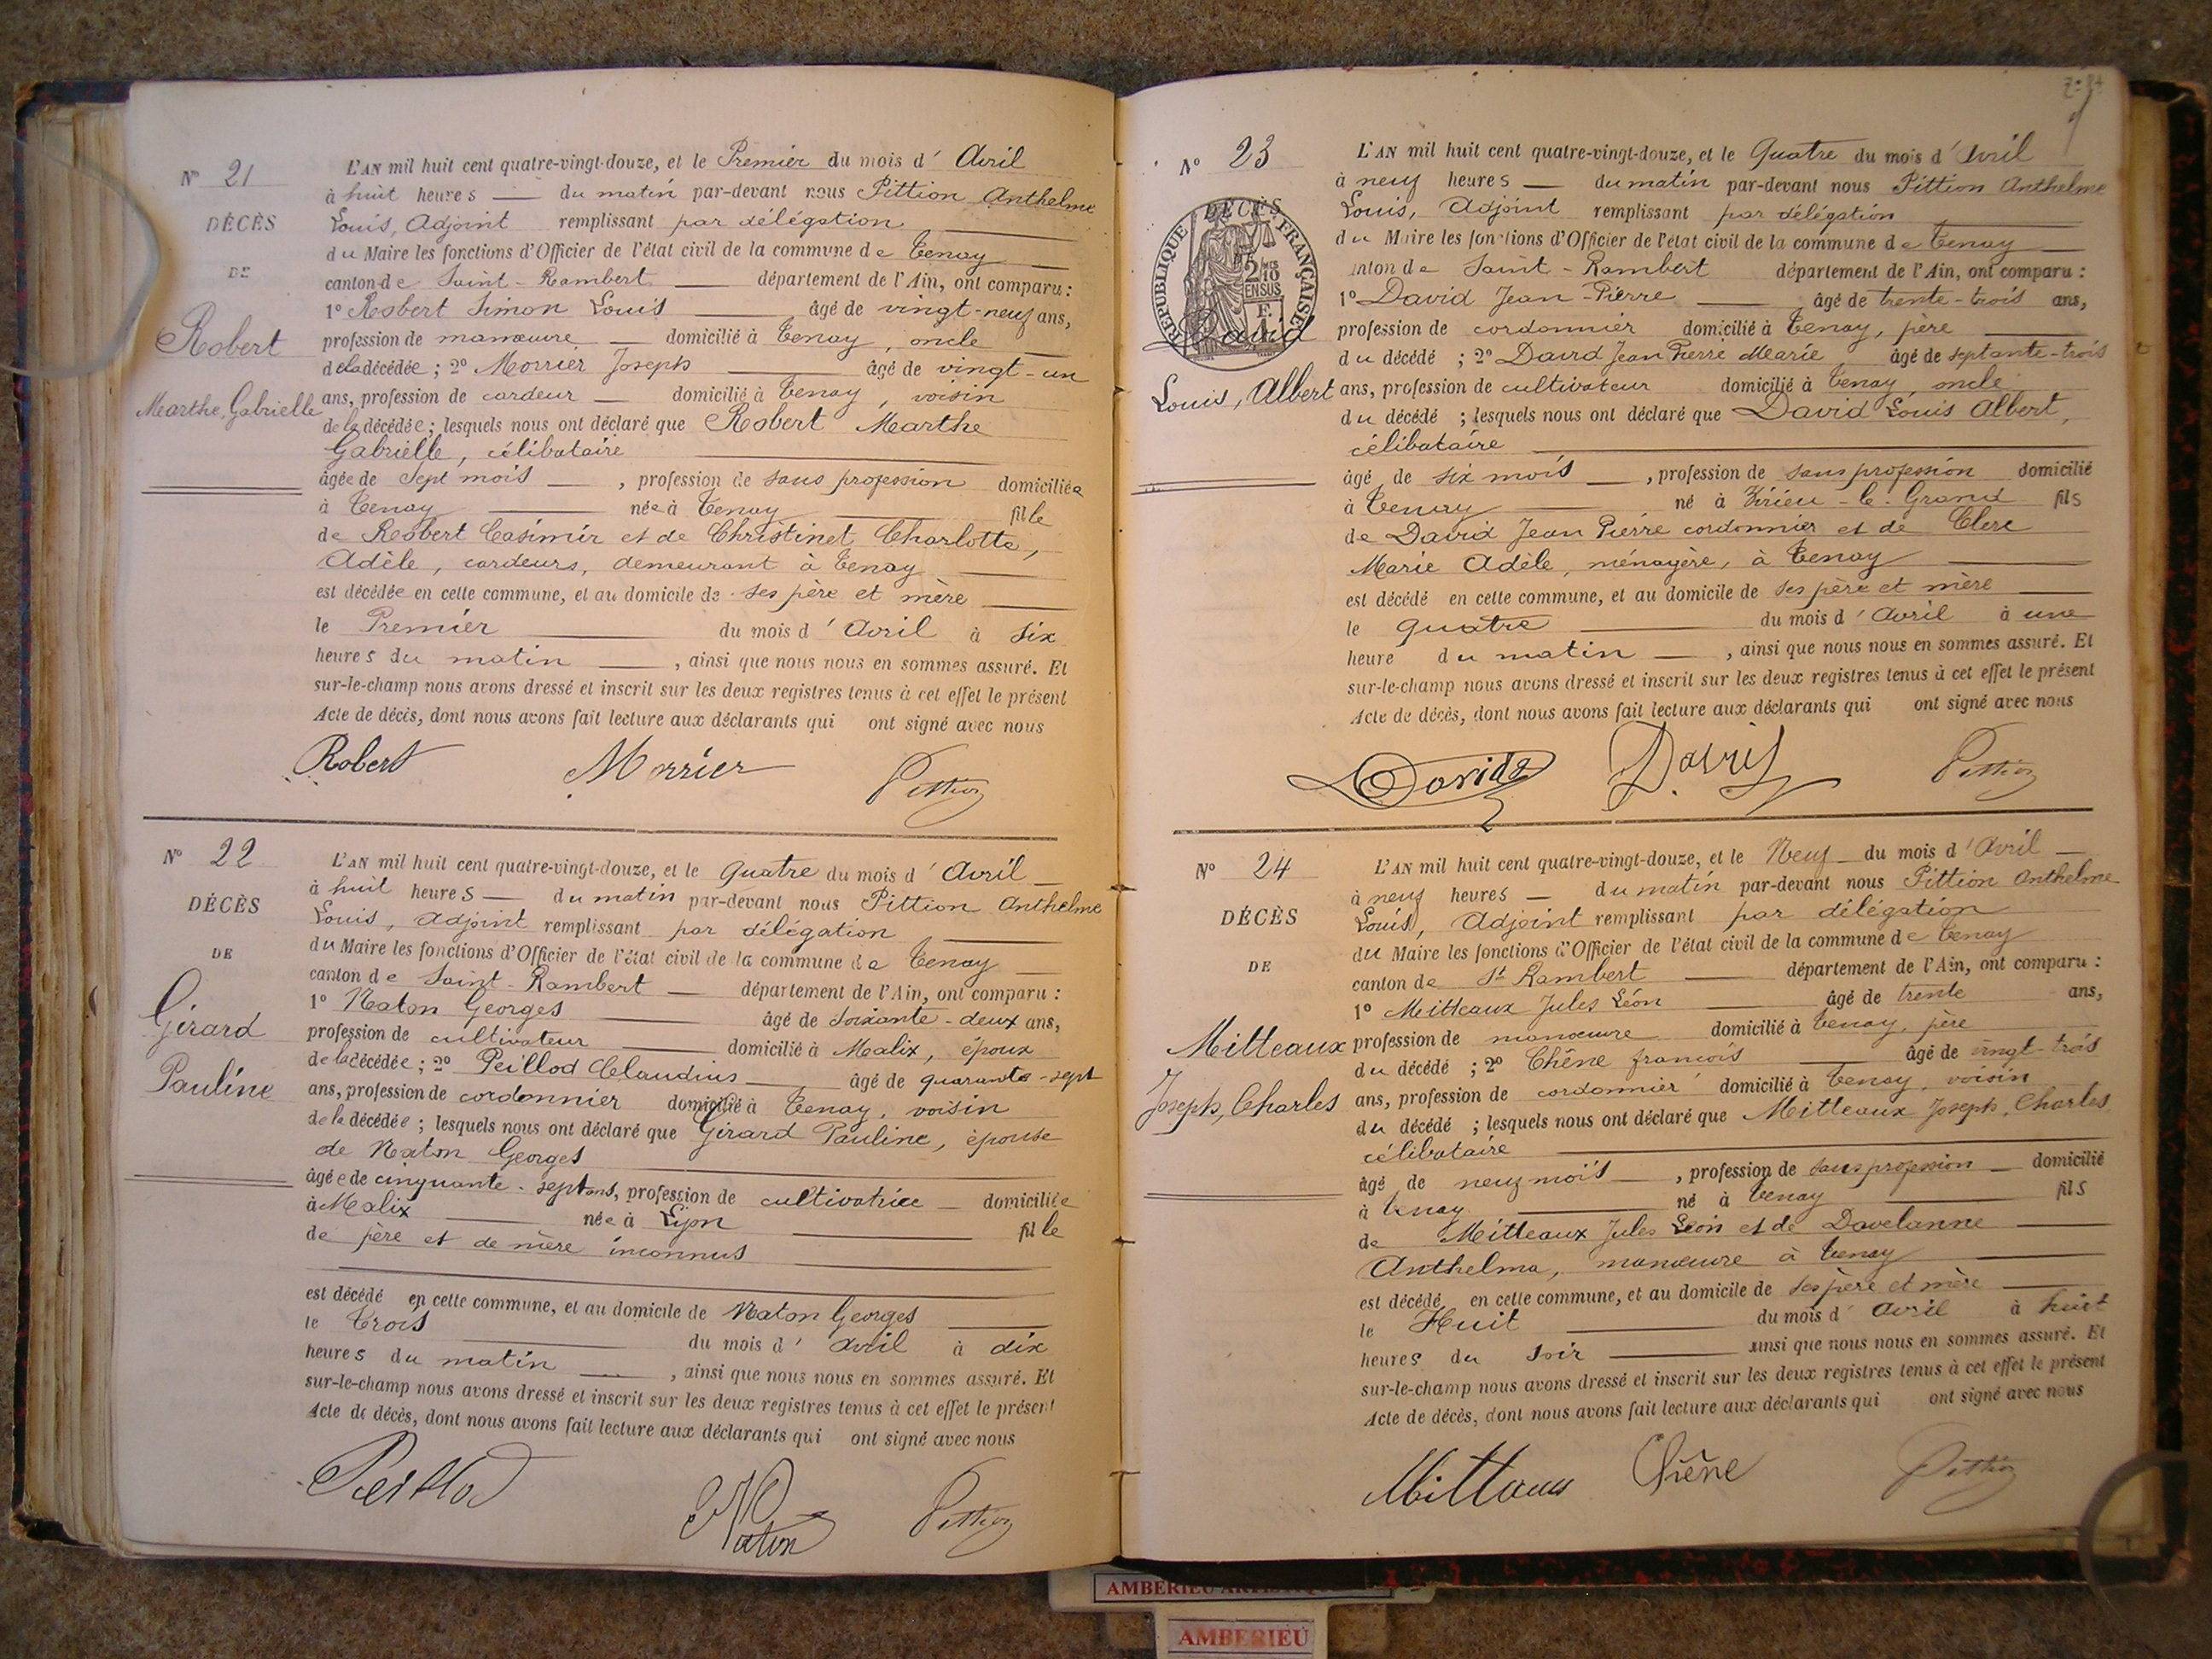 N° 21
DÉCÈS
DE
Robert
Marthe, Gabrielle
L'AN mil huit cent quatre-vingt-douze, et le Premier du mois d' Avril
à huit heures du matin par-devant nous Pittion Anthelme
Louis, Adjoint remplissant par délégation
du Maire les fonctions d'Officier de l'état civil de la commune de Tenay
canton de Saint-Rambert département de l'Ain, ont comparu :
1° Robert Simon Louis âgé de vingt-neuf ans,
profession de manœuvre domicilié à Tenay, oncle
de la décédée ; 2° Morrier Joseph âgé de vingt-un
ans, profession de cardeur domicilié à Tenay, voisin
de la décédée ; lesquels nous ont déclaré que Robert Marthe
Gabrielle, célibataire
âgée de Sept mois , profession de sans profession domiciliée
à Tenay née à Tenay fille
de Robert Casimir et de Christinet Charlotte,
Adèle, cardeurs, demeurant à Tenay
est décédée en cette commune, et au domicile de ses père et mère
le Premier du mois d' Avril à six
heures du matin , ainsi que nous nous en sommes assuré. Et
sur-le-champ nous avons dressé et inscrit sur les deux registres tenus à cet effet le présent
Acte de décès, dont nous avons fait lecture aux déclarants qui ont signé avec nous
Robert Morrier Pittion
N° 22
DÉCÈS
DE
Girard
Pauline
L'AN mil huit cent quatre-vingt-douze, et le Quatre du mois d' Avril
à huit heures du matin par-devant nous Pittion Anthelme
Louis, Adjoint remplissant par délégation
du Maire les fonctions d'Officier de l'état civil de la commune de Tenay
canton de Saint-Rambert département de l'Ain, ont comparu :
1° Naton Georges âgé de soixante-deux ans,
profession de cultivateur domicilié à Malix, époux
de la décédée ; 2° Peillod Claudius âgé de quarante-sept
ans, profession de cordonnier domicilié à Tenay, voisin
de la décédée ; lesquels nous ont déclaré que Girard Pauline, épouse
de Naton Georges
âgée de cinquante-sept ans, profession de cultivatrice domiciliée
à Malix née à Lyon fille
de père et de mère inconnus
est décédé en cette commune, et au domicile de Naton Georges
le Trois du mois d' avril à dix
heures du matin , ainsi que nous nous en sommes assuré. Et
sur-le-champ nous avons dressé et inscrit sur les deux registres tenus à cet effet le présent
Acte de décès, dont nous avons fait lecture aux déclarants qui ont signé avec nous
Peillod Naton Pittion
N° 23
DÉCÈS
RÉPUBLIQUE FRANÇAISE
2/10 EN SUS
David
Louis, Albert
L'AN mil huit cent quatre-vingt-douze, et le Quatre du mois d' Avril
à neuf heures du matin par-devant nous Pittion Anthelme
Louis, Adjoint remplissant par délégation
du Maire les fonctions d'Officier de l'état civil de la commune de Tenay
canton de Saint-Rambert département de l'Ain, ont comparu :
1° David Jean-Pierre âgé de trente-trois ans,
profession de cordonnier domicilié à Tenay, père
du décédé ; 2° David Jean Pierre Marie âgé de septante-trois
ans, profession de cultivateur domicilié à Tenay, oncle
du décédé ; lesquels nous ont déclaré que David Louis Albert,
célibataire
âgé de six mois , profession de sans profession domicilié
à Tenay né à Virieu-le-Grand fils
de David Jean Pierre cordonnier et de Clerc
Marie Adèle, ménagère, à Tenay
est décédé en cette commune, et au domicile de ses père et mère
le quatre du mois d' Avril à une
heure du matin , ainsi que nous nous en sommes assuré. Et
sur-le-champ nous avons dressé et inscrit sur les deux registres tenus à cet effet le présent
Acte de décès, dont nous avons fait lecture aux déclarants qui ont signé avec nous
David David Pittion
N° 24
DÉCÈS
DE
Mitteaux
Joseph, Charles
L'AN mil huit cent quatre-vingt-douze, et le Neuf du mois d' Avril
à neuf heures du matin par-devant nous Pittion Anthelme
Louis, Adjoint remplissant par délégation
du Maire les fonctions d'Officier de l'état civil de la commune de Tenay
canton de St Rambert département de l'Ain, ont comparu :
1° Mitteaux Jules Léon âgé de trente ans,
profession de manœuvre domicilié à Tenay, père
du décédé ; 2° Chêne françois âgé de vingt-trois
ans, profession de cordonnier domicilié à Tenay, voisin
du décédé ; lesquels nous ont déclaré que Mitteaux Joseph, Charles
célibataire
âgé de neuf mois , profession de sans profession domicilié
à Tenay né à Tenay fils
de Mitteaux Jules Léon et de Davelanne
Anthelma, manœuvre à Tenay
est décédé en cette commune, et au domicile de ses père et mère
le Huit du mois d' Avril à huit
heures du soir ainsi que nous nous en sommes assuré. Et
sur-le-champ nous avons dressé et inscrit sur les deux registres tenus à cet effet le présent
Acte de décès, dont nous avons fait lecture aux déclarants qui ont signé avec nous
Mitteaux Chêne Pittion
AMBERIEU
AMBERIEU